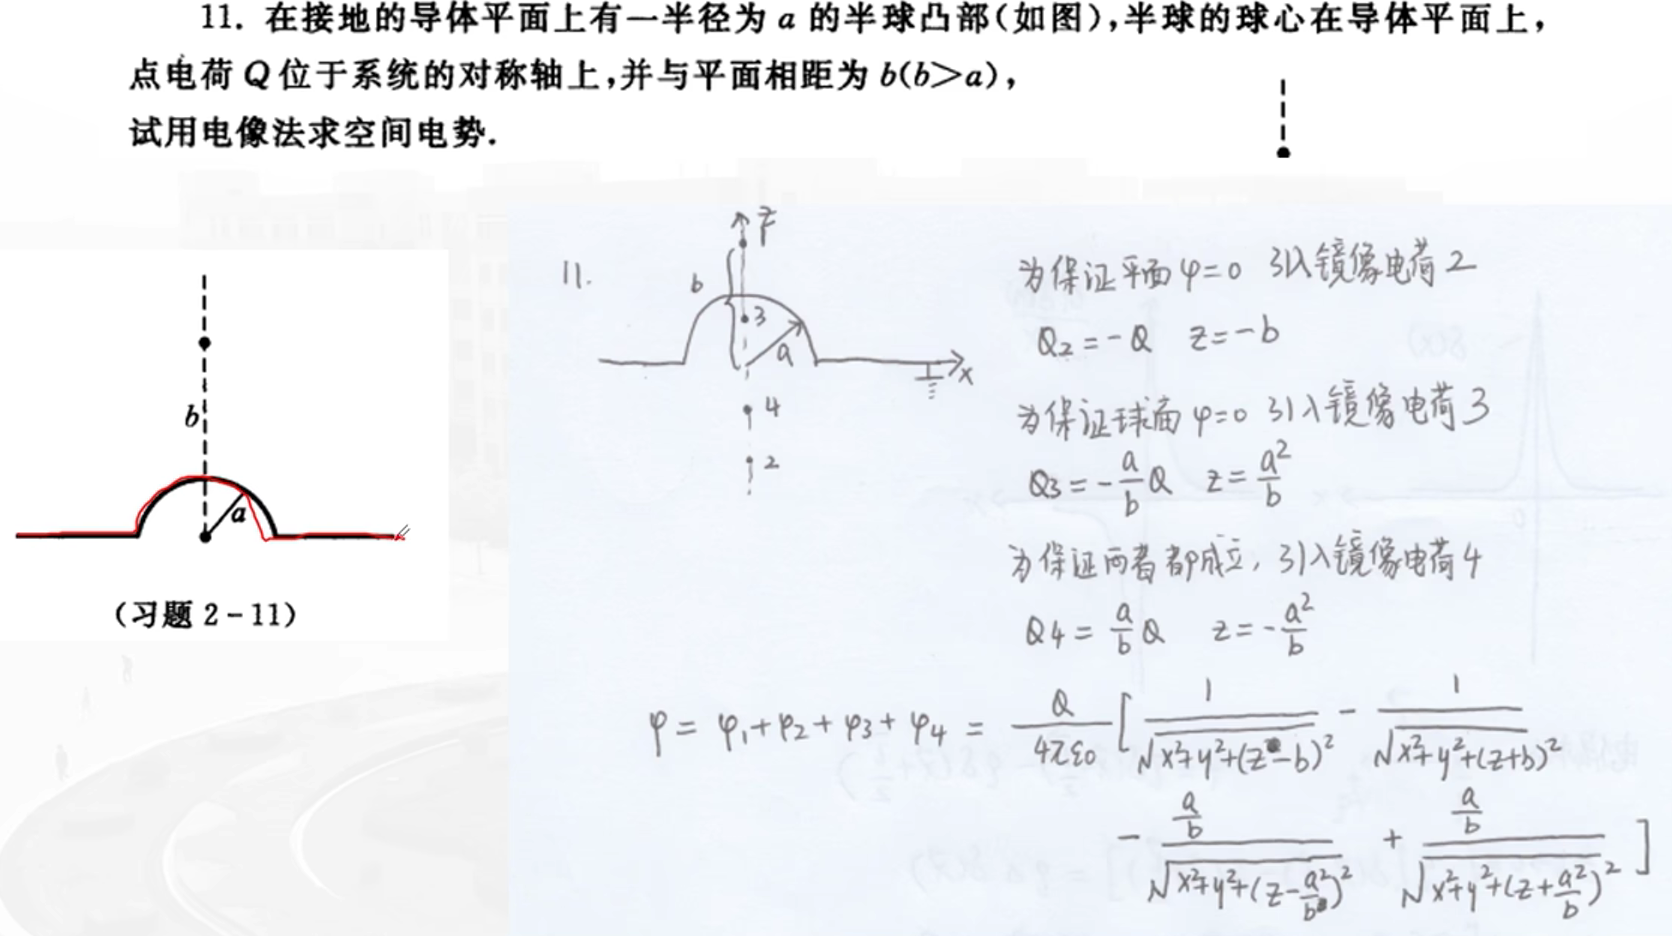 11. 在接地的导体平面上有一半径为 a 的半球凸部(如图),半球的球心在导体平面上,
点电荷 Q 位于系统的对称轴上,并与平面相距为 b(b>a),
试用电像法求空间电势.
b
a
(习题 2-11)
11.
z
b
3
a
x
4
2
为保证平面 φ=0 引入镜像电荷 2
Q₂ = -Q z = -b
为保证球面 φ=0 引入镜像电荷 3
Q3 = -a/b Q z = a²/b
为保证两者都成立, 引入镜像电荷 4
Q4 = a/b Q z = -a²/b
φ = φ₁+φ₂+φ₃+φ₄ = Q/4πε₀ [ 1/√x²+y²+(z-b)² - 1/√x²+y²+(z+b)²
- a/b/√x²+y²+(z-a²/b)² + a/b/√x²+y²+(z+a²/b)² ]